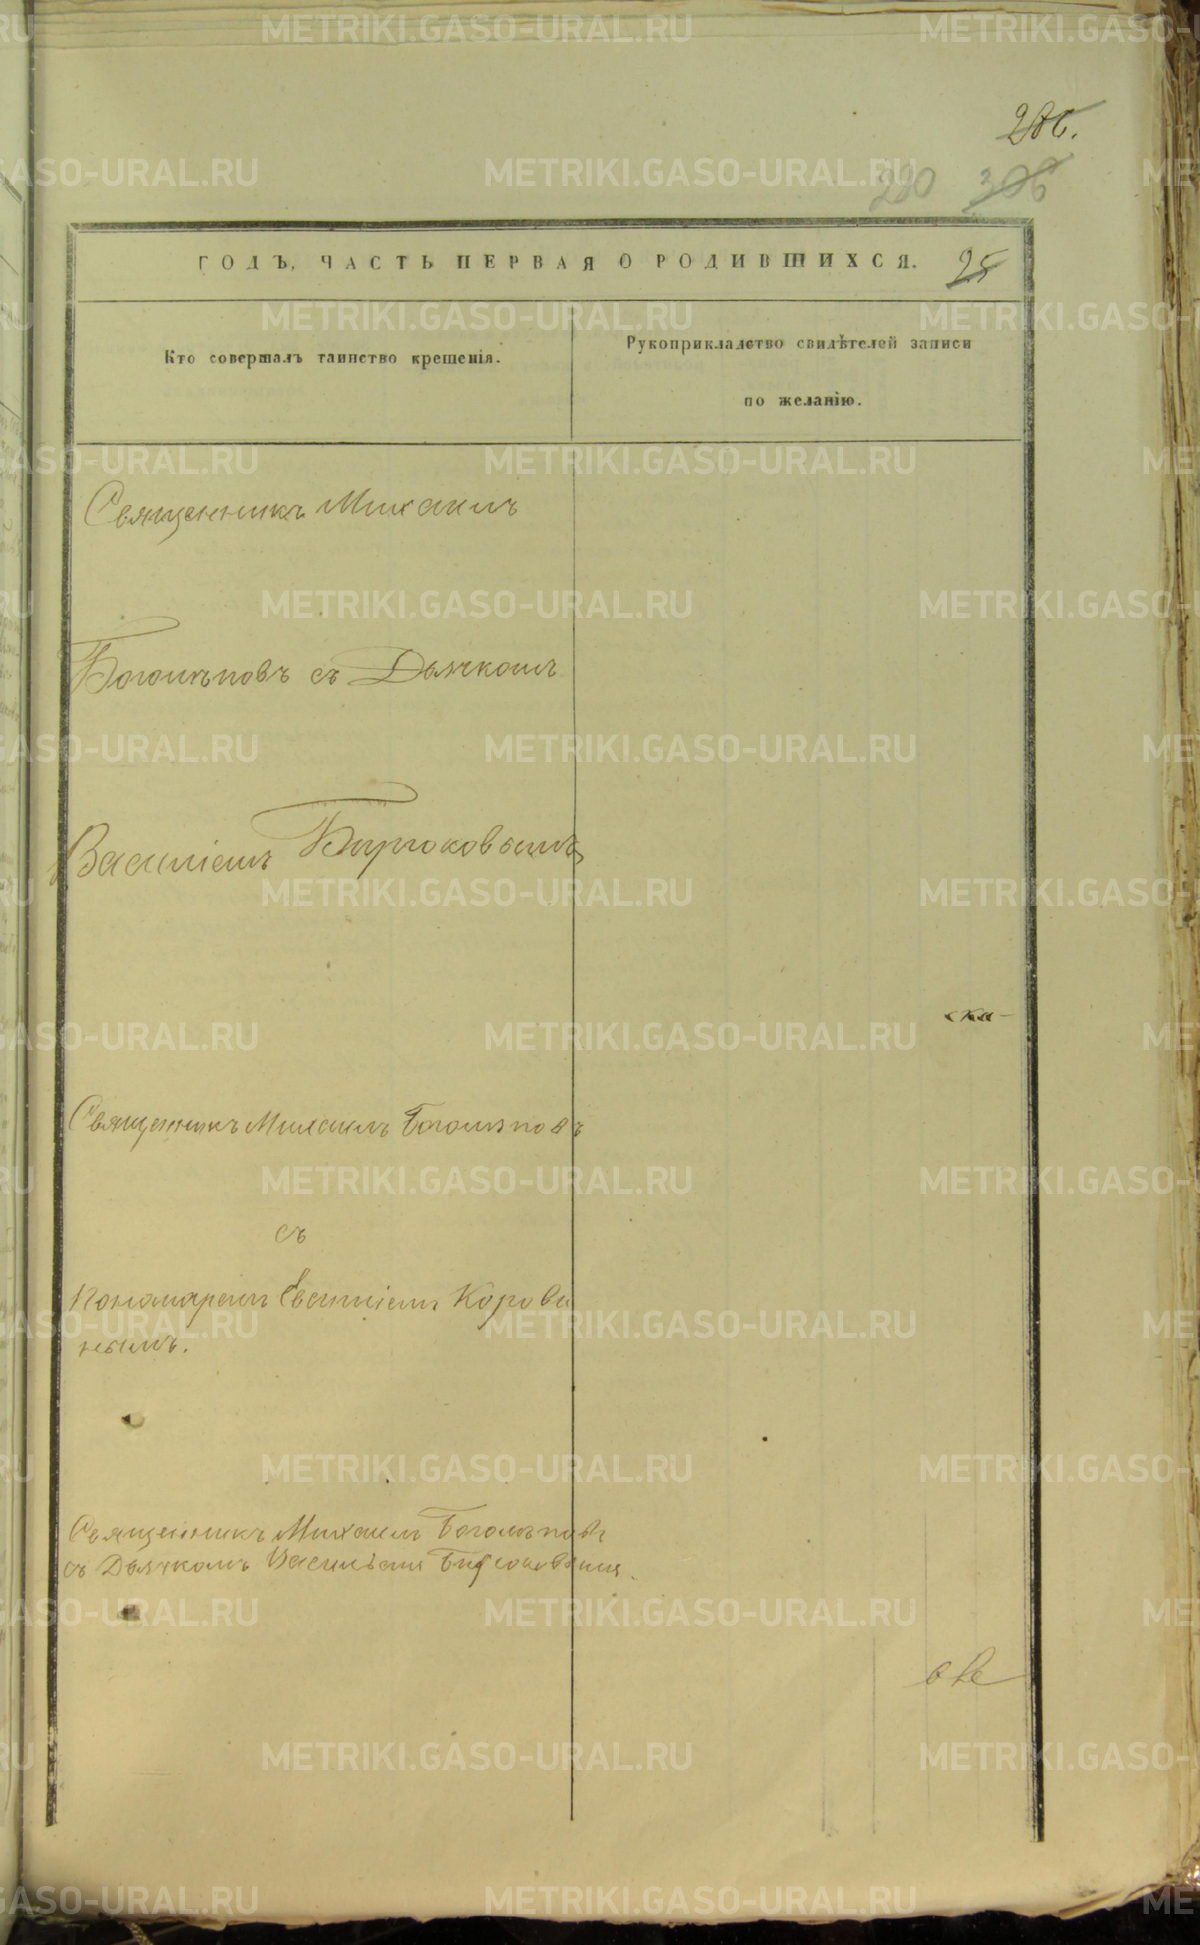 286.
280 306
ГОДЪ, ЧАСТЬ ПЕРВАЯ О РОДИВШИХСЯ. 25
Кто совершалъ таинство крещенія.
Рукоприкладство свидѣтелей записи
по желанію.
Священникъ Михаилъ
Боголѣповъ съ Дьячкомъ
Василіемъ Бирюковымъ
Священникъ Михаилъ Боголѣповъ
съ
Пономаремъ Евсигніемъ Корови
нымъ.
Священникъ Михаилъ Боголѣповъ
съ Дьячкомъ Васильемъ Бирюковымъ.
METRIKI.GASO-URAL.RU